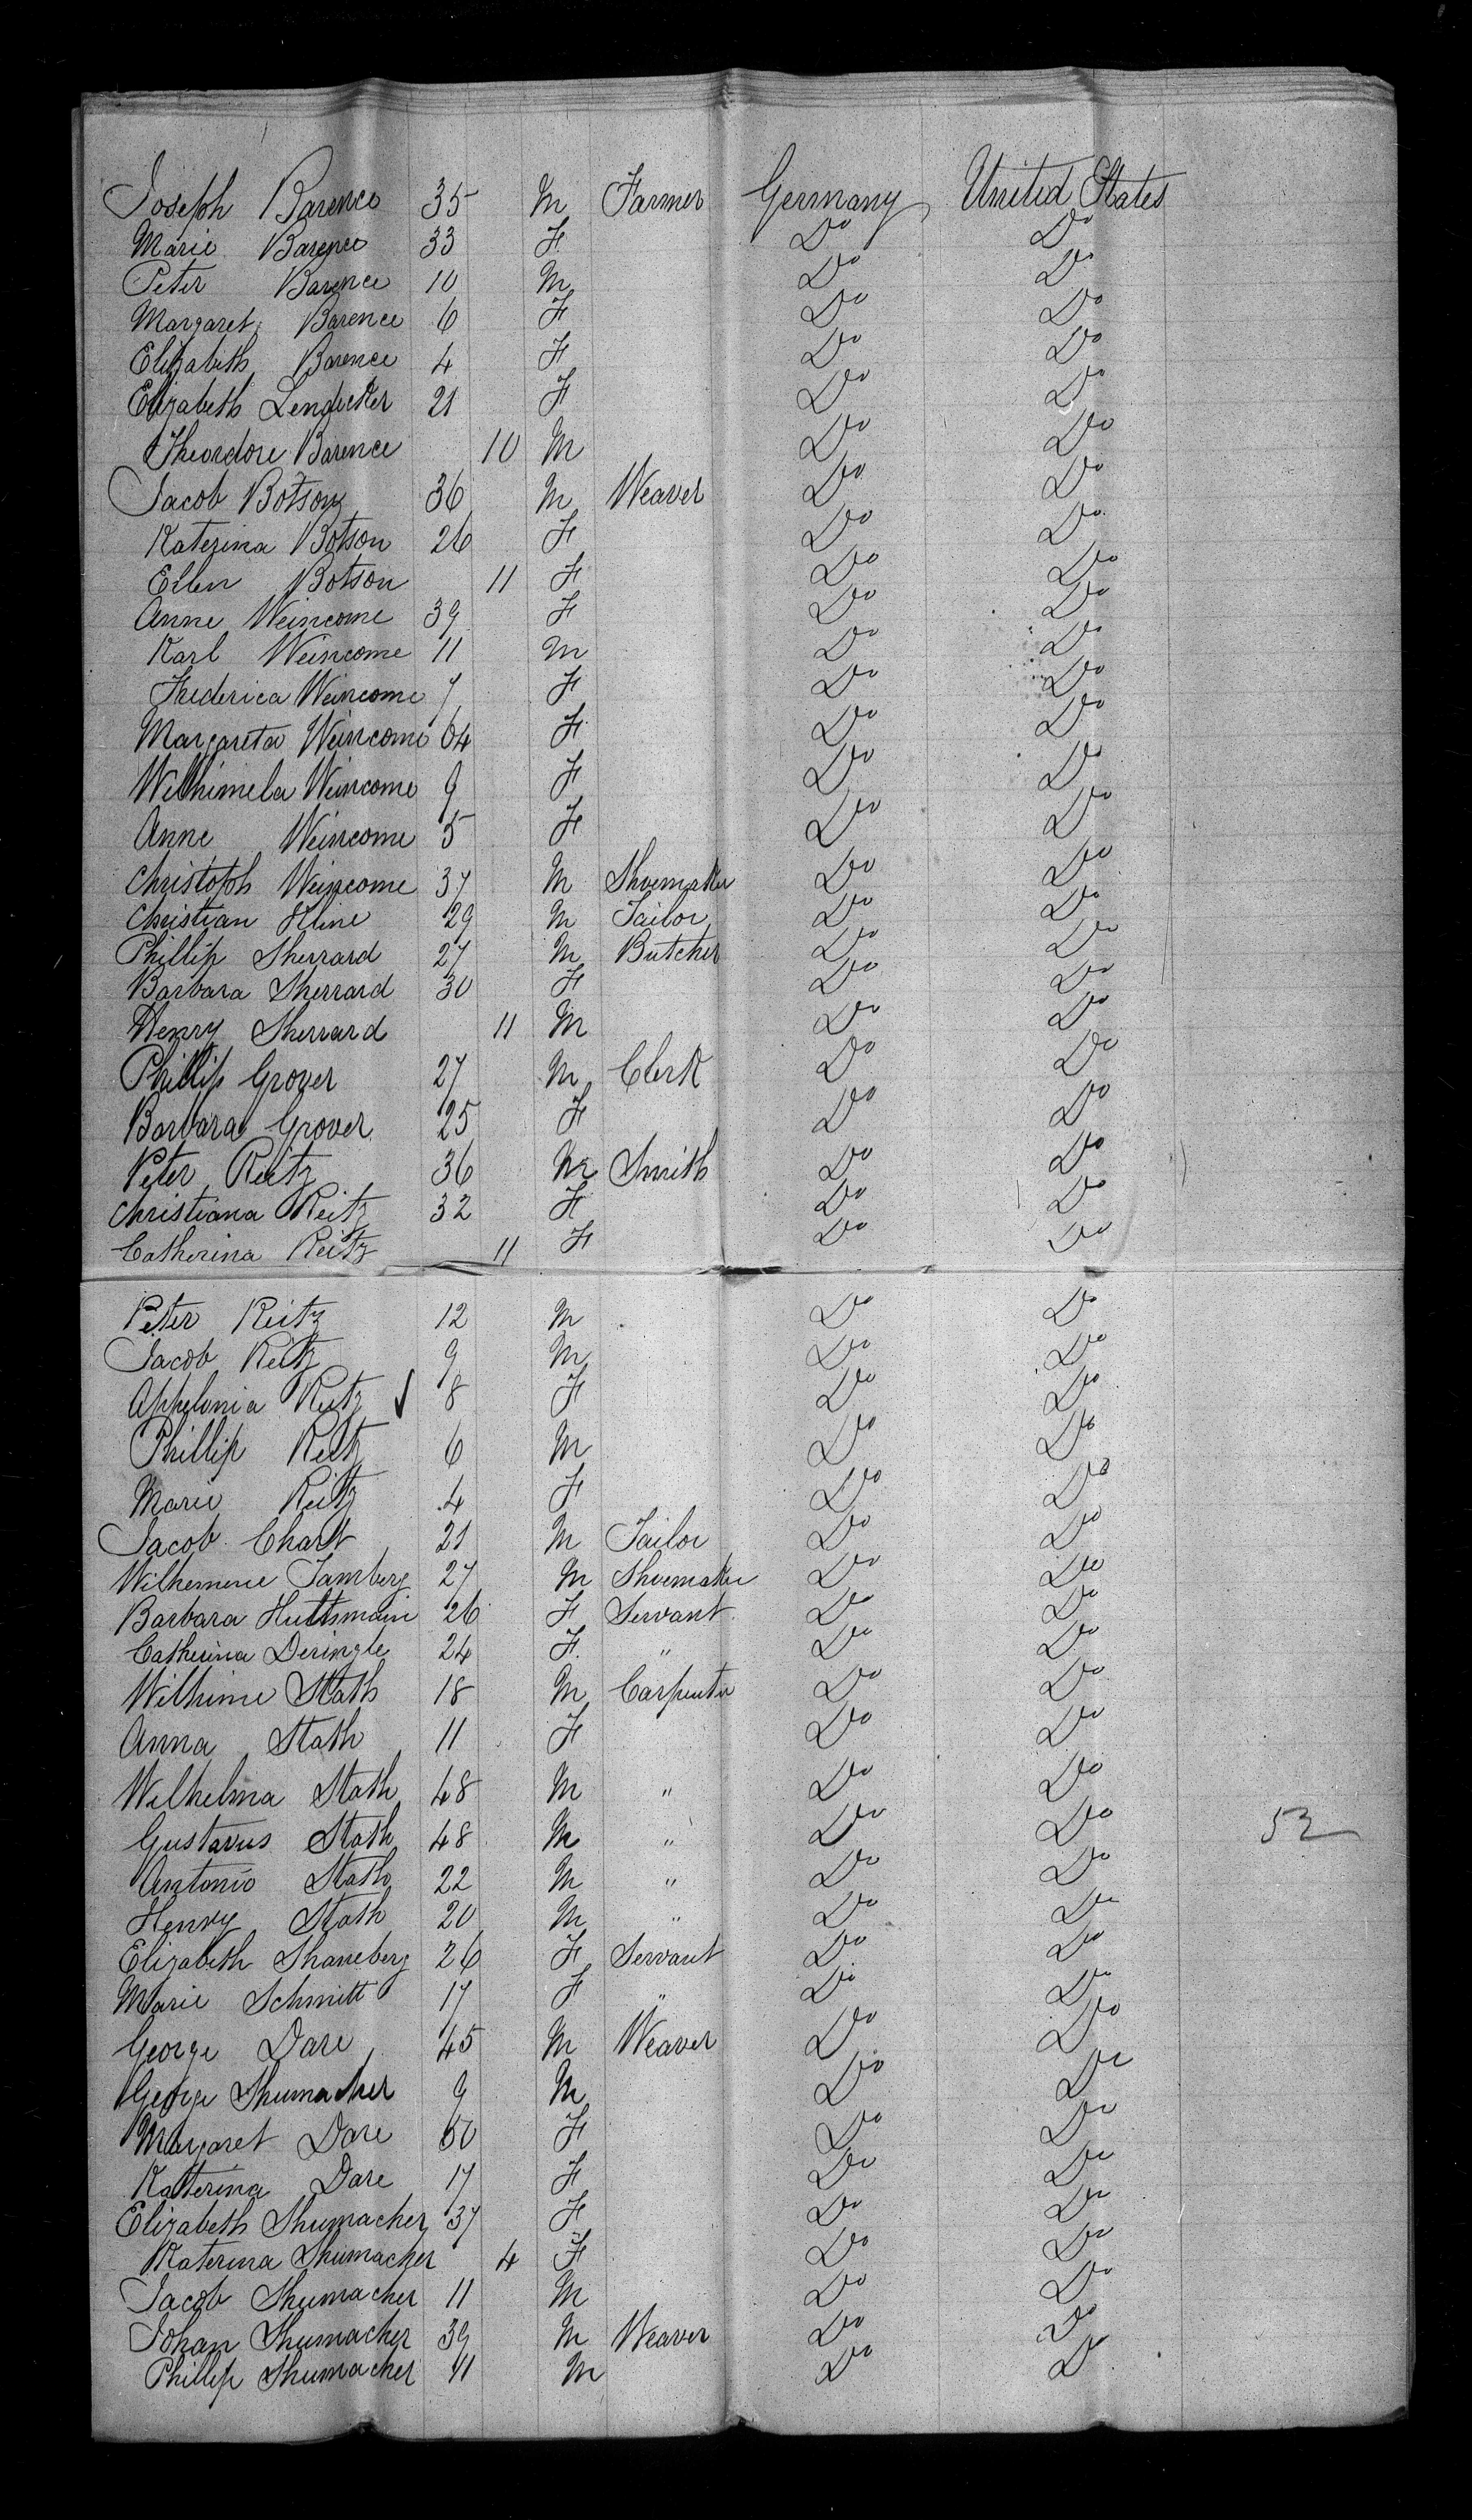 Joseph Barence 35 M Farmer Germany United States
Marie Barence 33 F Do Do
Peter Barence 10 M Do Do
Margaret Barence 6 F Do Do
Elizabeth Barence 4 F Do Do
Elizabeth 21 F Do Do
Theordore Barence 10 M Do Do
Jacob Botson 36 M Weaver Do Do
Katerina Botson 26 F Do Do
Ellen Botson 11 F Do Do
Anne Weincome 39 F Do Do
Karl Weincome 11 M Do Do
Frederica Weincome 7 F Do Do
Margareta Weincome 64 F Do Do
Wilhimela Weincome 9 F Do Do
Anne Weincome 5 F Do Do
Christoph Weincome 37 M Shoemaker Do Do
Christian Kline 29 M Tailor Do Do
Phillip Sherrard 27 M Butcher Do Do
Barbara Sherrard 30 F Do Do
Henry Sherrard 11 M Do Do
Phillip Grover 27 M Clerk Do Do
Barbara Grover 25 F Do Do
Peter Reitz 36 M Smith Do Do
Christiana Reitz 32 F Do Do
Catherina Reitz 11 F Do Do
Peter Reitz 12 M Do Do
Jacob Reitz 9 M Do Do
Appelonia Reitz 8 F Do Do
Phillip Reitz 6 M Do Do
Marie Reitz 4 F Do Do
Jacob Chart 21 M Tailor Do Do
Wilhemene Tamberg 27 M Shoemaker Do Do
Barbara Hultsmain 26 F Servant Do Do
Catherina Deringle 24 F " Do Do
Wilhime Stath 18 M Carpenter Do Do
Anna Stath 11 F Do Do
Wilhelma Stath 48 M " Do Do
Gustavus Stath 48 M " Do Do 52
Antonio Stath 22 M " Do Do
Henry Stath 20 M " Do Do
Elizabeth Shaneberg 26 F Servant Do Do
Marie Schmitt 17 F " Do Do
George Dare 45 M Weaver Do Do
George Shumacher 9 M Do Do
Margaret Dare 50 F Do Do
Katterina Dare 17 F Do Do
Elizabeth Shumacher 37 F Do Do
Katerina Shumacher 4 F Do Do
Jacob Shumacher 11 M Do Do
Johan Shumacher 39 M Weaver Do Do
Phillip Shumacher 11 M Do Do